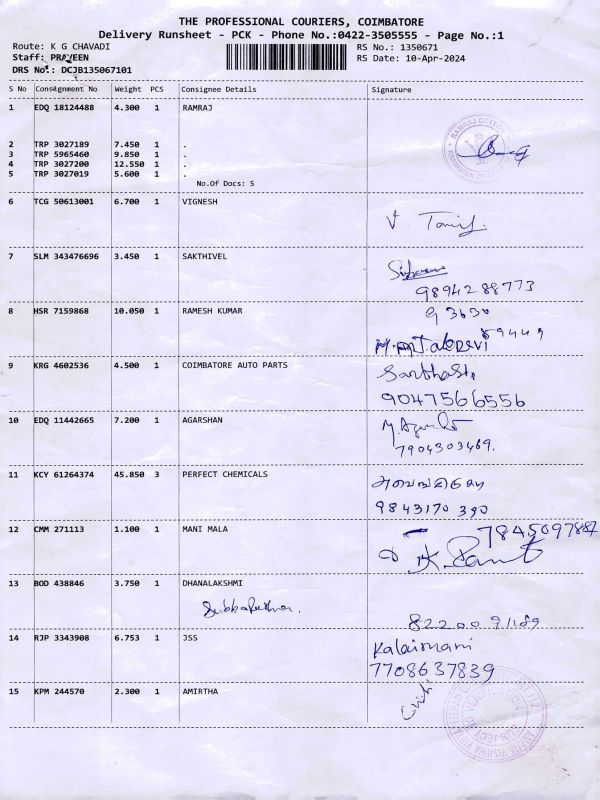 THE PROFESSIONAL COURIERS, COIMBATORE
Delivery Runsheet - PCK - Phone No.:0422-3505555 - Page No.:1
Route: K G CHAVADI RS No.: 1350671
Staff: PRAVEEN RS Date: 10-Apr-2024
DRS No.: DCJB135067101
S No Consignment No Weight PCS Consignee Details Signature
1 EDQ 18124488 4.300 1 RAMRAJ
RAMRAJ COTTON
2 TRP 3027189 7.450 1 .
3 TRP 5965460 9.850 1 .
4 TRP 3027200 12.550 1 .
5 TRP 3027019 5.600 1 .
No.Of Docs: 5
6 TCG 50613001 6.700 1 VIGNESH
7 SLM 343476696 3.450 1 SAKTHIVEL
9894288773
8 HSR 7159868 10.050 1 RAMESH KUMAR
9 3630
59449
9 KRG 4602536 4.500 1 COIMBATORE AUTO PARTS
9047566556
10 EDQ 11442665 7.200 1 AGARSHAN
7904303469.
11 KCY 61264374 45.850 3 PERFECT CHEMICALS
9843170390
12 CMM 271113 1.100 1 MANI MALA
7845097887
13 BOD 438846 3.750 1 DHANALAKSHMI
14 RJP 3343908 6.753 1 JSS
Kalaimani
7708637839
15 KPM 244570 2.300 1 AMIRTHA